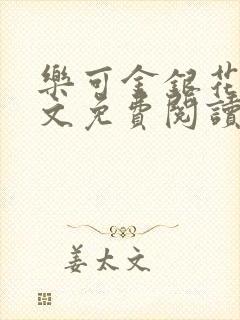 樂可金銀花
文免費閱讀
姜太文